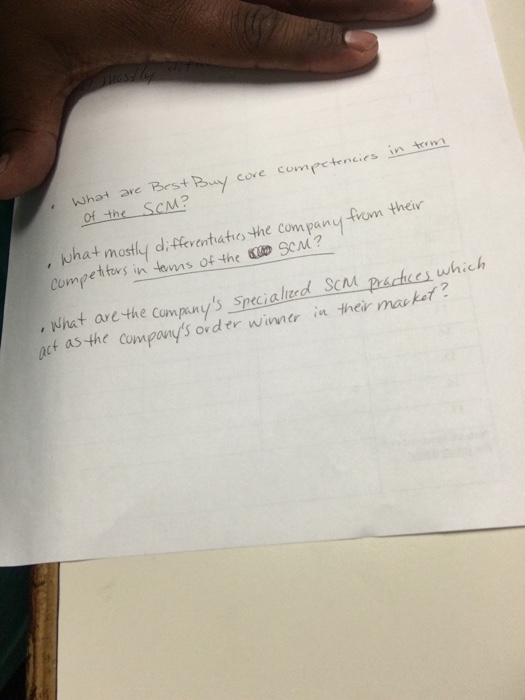 mostly
• What are Best Buy core competencies in term
of the SCM?
• What mostly differentiates the company from their
competitors in terms of the SCM?
• What are the company's specialized SCM practices which
act as the company's order winner in their market?